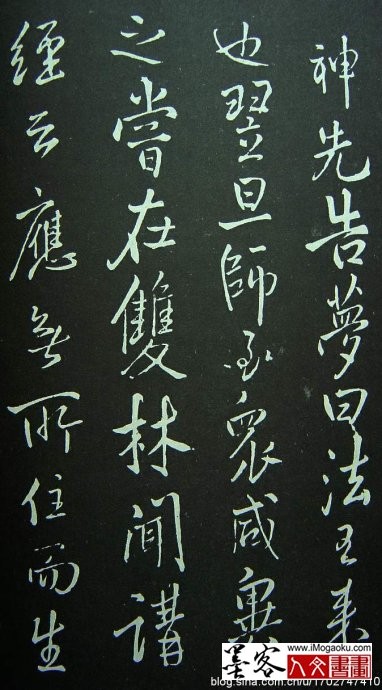 神先告夢曰法王來
也翌旦師至衆咸異
之嘗在雙林聞講
經云應無所住而生
www.iMogaoku.com
墨客 人文書畫
blog.sina.com.cn/u/1702747410